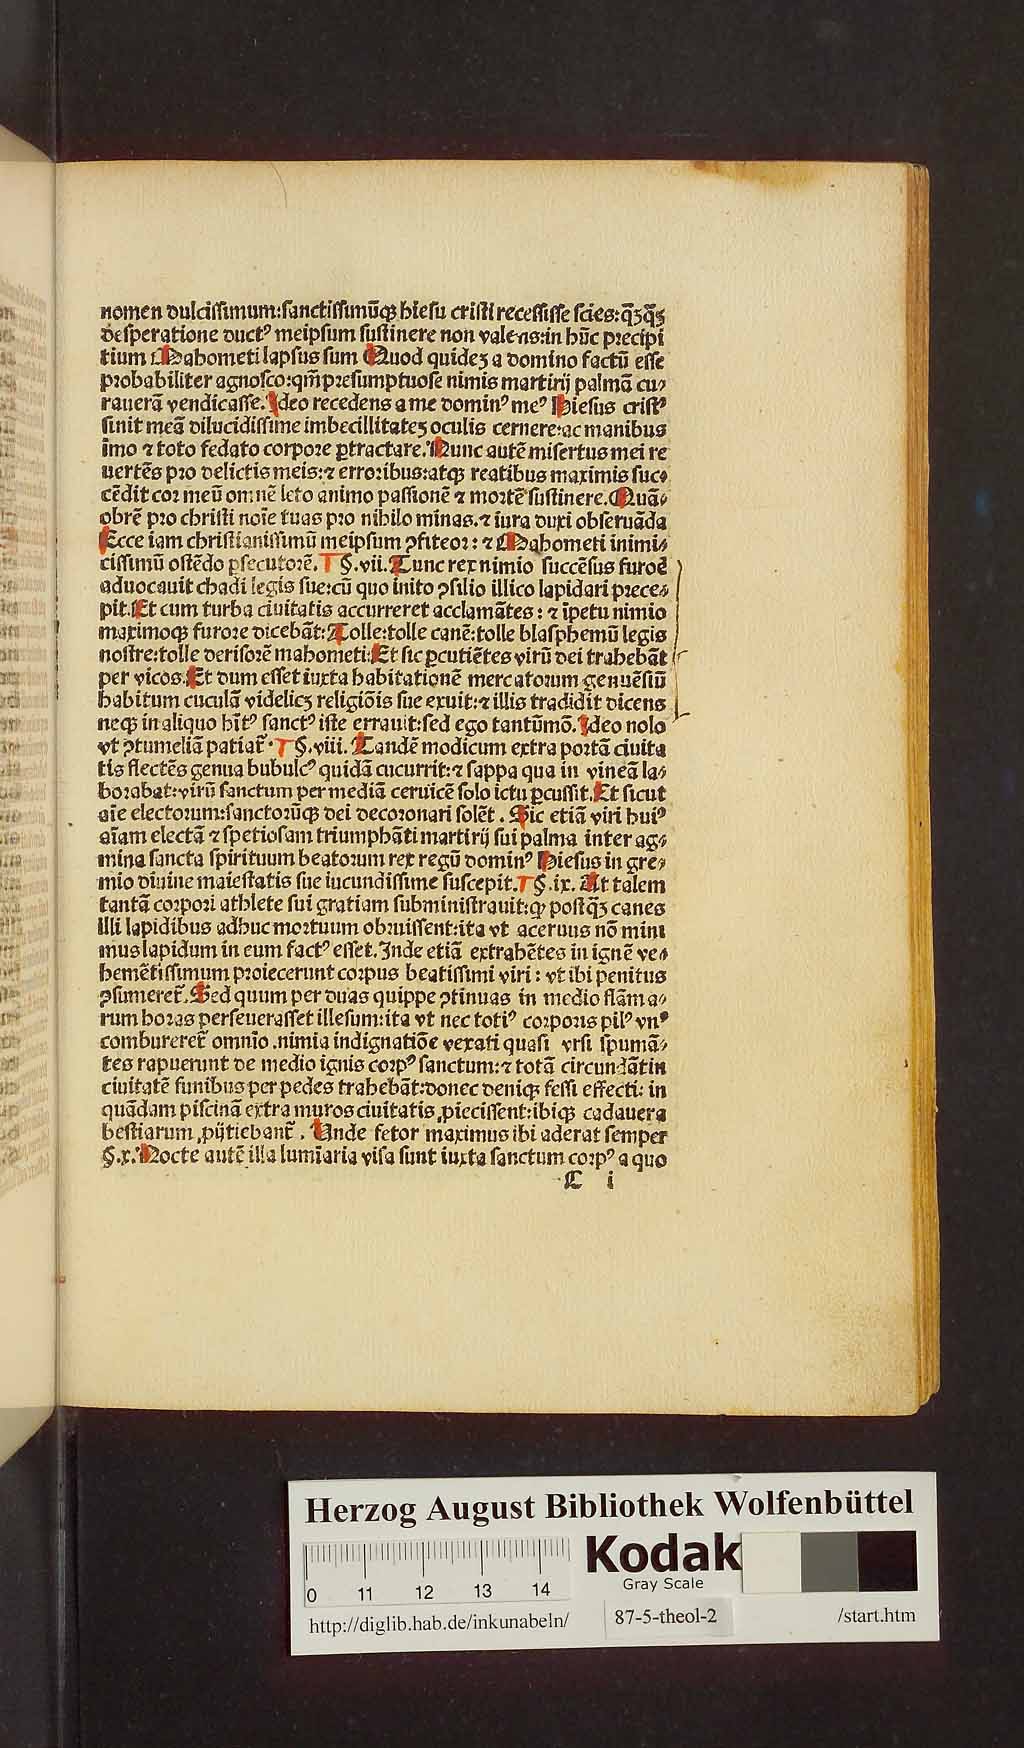 nomen dulcissimum:sanctissimūqꝫ hiesu cristi recessisse scies:qꝫq̄ꝫ
desperatione ductꝰ meipsum sustinere non valens:in hūc precipi
tium Mahometi lapsus sum Quod quideꝫ a domino factū esse
probabiliter agnosco:qm̄ presumptuose nimis martirij palmā cu⸗
rauerā vendicasse. Ideo recedens a me dominꝰ meꝰ Hiesus cristꝰ
sinit meā dilucidissime imbecillitateꝫ oculis cernere:ac manibus
imo ⁊ toto fedato corpore ꝑtractare. Nunc autē misertus mei re
uertēs pro delictis meis:⁊ erroribus:atqꝫ reatibus maximis suc⸗
cēdit cor meū omnē leto animo passionē ⁊ mortē sustinere. Quā⸗
obrē pro christi noīe tuas pro nihilo minas.⁊ iura duxi obseruāda
Ecce iam christianissimū meipsum ꝯfiteor: ⁊ Mahometi inimi⸗
cissimū ostēdo ꝑsecutorē. §.vii. Tunc rex nimio succēsus furoē
aduocauit chadi legis sue:cū quo inito ꝯsilio illico lapidari prece⸗
pit. Et cum turba ciuitatis accurreret acclamātes: ⁊ īpetu nimio
maximoqꝫ furore dicebāt: Tolle:tolle canē:tolle blasphemū legis
nostre:tolle derisorē mahometi: Et sic ꝑcutiētes virū dei trahebāt
per vicos. Et dum esset iuxta habitationē mercatorum genuēsiū
habitum cuculā videlicꝫ religiōis sue exuit:⁊ illis tradidit dicens
neqꝫ in aliquo hītꝰ sanctꝰ iste errauit:sed ego tantūmō. Ideo nolo
vt ꝯtumeliā patiat̄. §.viii. Tandē modicum extra portā ciuita
tis flectēs genua bubulcꝰ quidā cucurrit:⁊ sappa qua in vineā la⸗
borabat:virū sanctum per mediā ceruicē solo ictu ꝑcussit. Et sicut
aīe electorum:sanctorūqꝫ dei decoronari solēt. Sic etiā viri huiꝰ
aīam electā ⁊ spetiosam triumphāti martirij sui palma inter ag⸗
mina sancta spirituum beatorum rex regū dominꝰ Hiesus in gre⸗
mio diuine maiestatis sue iucundissime suscepit. §.ix. At talem
tantā corpori athlete sui gratiam subministrauit:qꝫ postq̄ꝫ canes
illi lapidibus adhuc mortuum obruissent:ita vt aceruus nō mini
mus lapidum in eum factꝰ esset. Inde etiā extrahētes in ignē ve⸗
hemētissimum proiecerunt corpus beatissimi viri: vt ibi penitus
ꝯsumeret̄. Sed quum per duas quippe ꝯtinuas in medio flāma⸗
rum horas perseuerasset illesum:ita vt nec totiꝰ corporis pilꝰ vnꝰ
combureret̄ omnīo .nimia indignatiōe vexati quasi vrsi spumā⸗
tes rapuerunt de medio ignis corpꝰ sanctum:⁊ totā circundātin
ciuitatē funibus per pedes trahebāt:donec deniqꝫ fessi effecti: in
quādam piscinā extra muros ciuitatis ꝓiecissent:ibiqꝫ cadauera
bestiarum ꝓijtiebant̄. Unde fetor maximus ibi aderat semper
§.x. Nocte autē illa lumīaria visa sunt iuxta sanctum corpꝰ a quo
C i
Herzog August Bibliothek Wolfenbüttel
Kodak
Gray Scale
0 11 12 13 14
http://diglib.hab.de/inkunabeln/ 87-5-theol-2 /start.htm